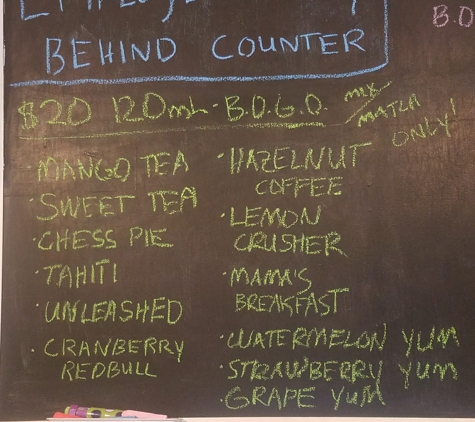 BEHIND COUNTER
B.O
$20 120mL - B.O.G.O. MIX/MATCH ONLY!
· MANGO TEA
· SWEET TEA
· CHESS PIE
· TAHITI
· UNLEASHED
· CRANBERRY
REDBULL
· HAZELNUT
COFFEE
· LEMON
CRUSHER
· MAMA'S
BREAKFAST
· WATERMELON YUM
· STRAWBERRY YUM
· GRAPE YUM